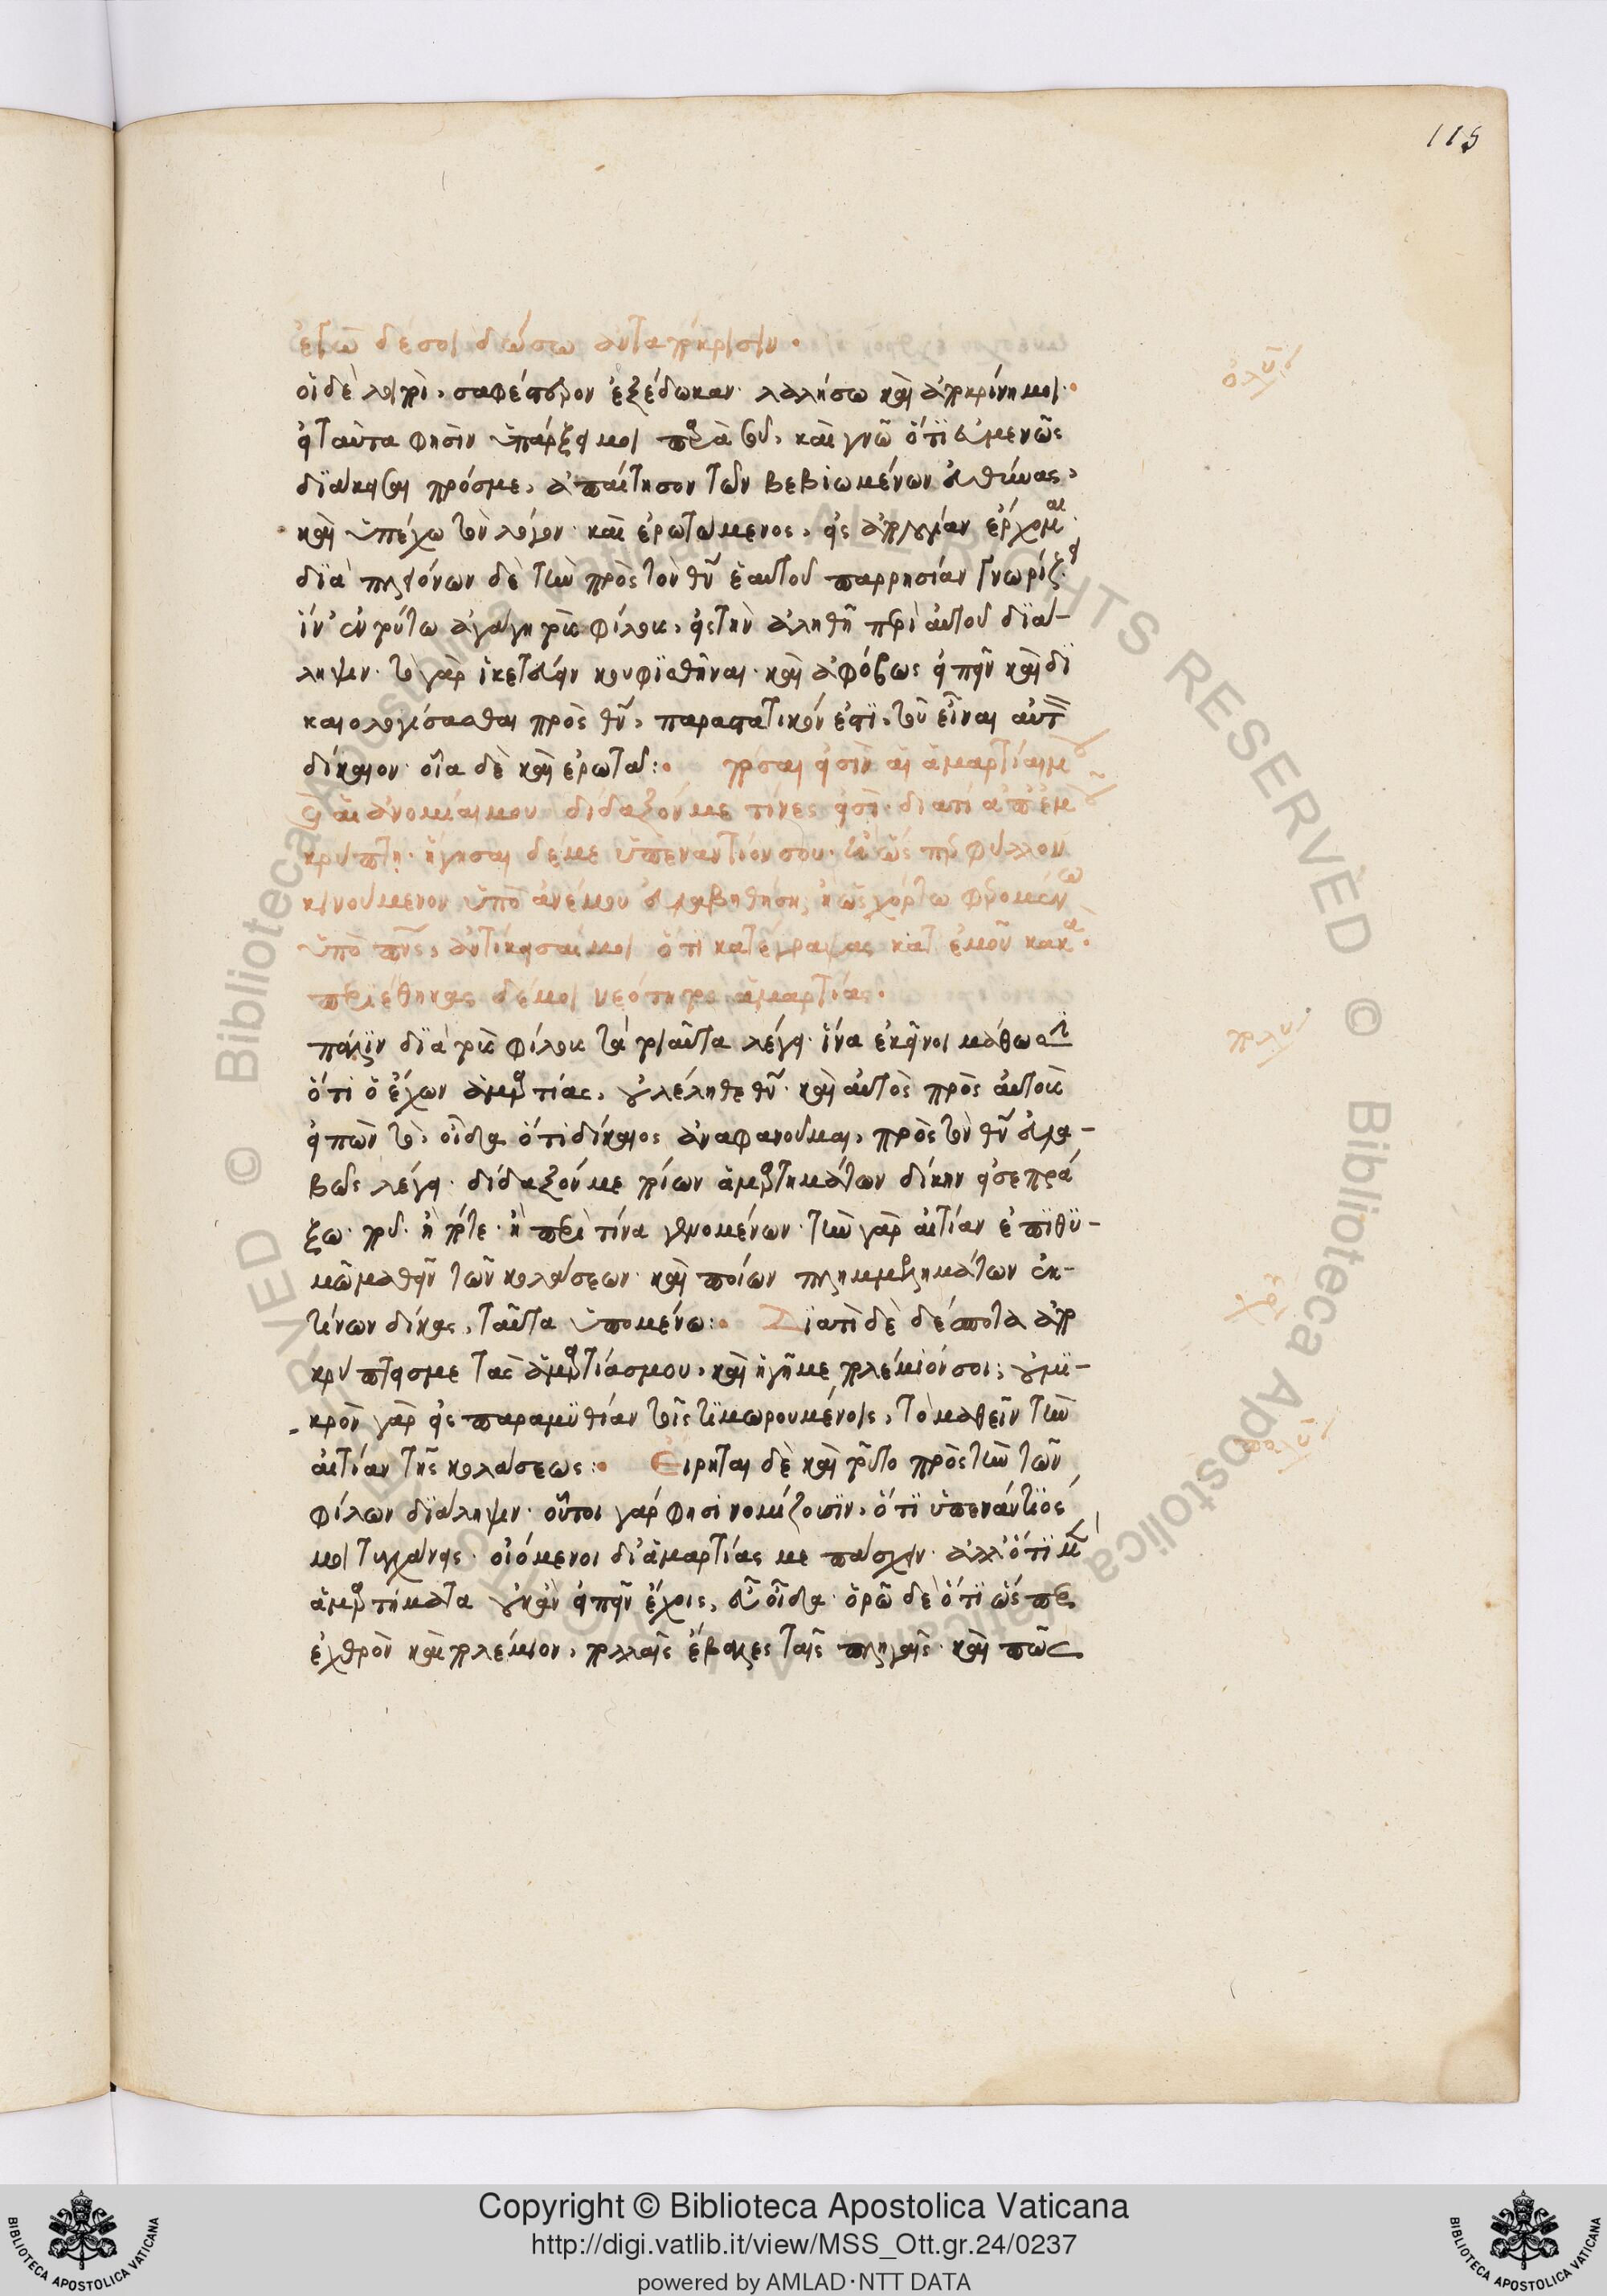 115
ἐγὼ δέ σοι δώσω ἀνταπόκρισιν·
οἱ δὲ λοιποὶ, σαφέστερον ἐξέδωκαν· λαλήσω καὶ ἀποκρίνη μοι·
εἶτα ὕπαρξαι μοι φησὶν καὶ γνῶ ὅτι εὐμενῶς
διάκεισαι πρός με, ἀπαίτησον τῶν βεβιωμένων εὐθύνας,
καὶ ὑπέχω τὸν λόγον· καὶ ἐρωτώμενος, εἰς ἀπολογίαν ἔρχομαι·
διὰ πλειόνων δὲ τὴν πρὸς τὸν θν ἑαυτοῦ παρρησίαν γνωρίζει
ἵν' ἐν τούτω ἀγάγη τοὺς φίλους, εἰς τὴν ἀληθῆ περὶ αὐτοῦ διά-
ληψιν· τὸ γὰρ ἱκετεύειν κουφισθῆναι· καὶ ἀφόβως εἰπεῖν καὶ δι
καιολογίσασθαι πρὸς θν, παραστατικόν ἐστι, τοῦ εἶναι αὐτὸν
δίκαιον· οἷα δὲ καὶ ἐρωτᾶ: πόσαι εἰσὶν αἱ ἁμαρτίαι μου
καὶ αἱ ἀνομίαι μου δίδαξόν με τίνες εἰσί· διατί ἀπ' ἐμοῦ
κρύπτη· ἥγησαι δέ με ὑπεναντίον σου· ἢ ὡς φύλλον
κινούμενον ὑπὸ ἀνέμου εὐλαβηθήση, ἢ ὡς χόρτω φερομένω
ὑπὸ πνς, ἀντίκεισαί μοι ὅτι κατέγραψας κατ' ἐμοῦ κακά·
περιέθηκας δέ μοι νεότητος ἁμαρτίας·
πάλιν διὰ τοὺς φίλους τὰ τοιαῦτα λέγει· ἵνα ἐκεῖνοι μάθωσι
ὅτι ὁ ἔχων ἁμαρτίας, οὐ λέληθε θν· καὶ αὐτὸς πρὸς αὐτοὺς
εἰπὼν τὸ, οἶδα ὅτι δίκαιος ἀναφανοῦμαι, πρὸς τὸν θν εὐλα-
βῶς λέγει· δίδαξόν με ποίων ἁμαρτημάτων δίκην εἰσεπρά
ξω· ποῦ· ἢ πότε· ἢ περὶ τίνα γενομένων· τὴν γὰρ αἰτίαν ἐπιθυ-
μῶ μαθεῖν τῶν κολάσεων· καὶ ποίων πλημμελημάτων ἐκ-
τίνων δίκας, ταῦτα ὑπομένω: Διατὶ δὲ δέσποτα ἀπο
κρύπτεις με τὰς ἁμαρτίας μου, καὶ ἡγῆ με πολέμιόν σοι; οὐ μι-
κρὸν γὰρ εἰς παραμυθίαν τοῖς τιμωρουμένοις, τὸ μαθεῖν τὴν
αἰτίαν τῆς κολάσεως: Εἴρηται δὲ καὶ τοῦτο πρὸς τὴν τῶν
φίλων διάληψιν· οὗτοι γάρ φησι νομίζουσιν, ὅτι ὑπεναντίος
μοι τυγχάνεις· οἰόμενοι δι' ἁμαρτίας με πάσχειν· ἀλλ' ὅτι μὲν
ἁμαρτήματα οὐκ ἂν εἰπεῖν ἔχοις, εὖ οἶδα· ὁρῶ δὲ ὅτι ὥσπερ
ἐχθρὸν καὶ πολέμιον, πολλαῖς ἔβαλες ταῖς πληγαῖς· καὶ πῶς
Copyright © Biblioteca Apostolica Vaticana
http://digi.vatlib.it/view/MSS_Ott.gr.24/0237
powered by AMLAD·NTT DATA